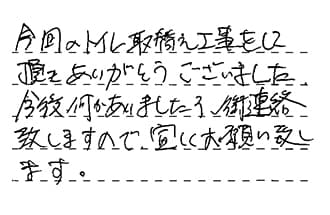 今回のトイレ取替え工事をして
頂きありがとうございました。
今後何かありましたら、御連絡
致しますので、宜しくお願い致し
ます。